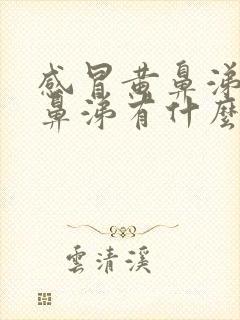 感冒黄鼻涕
鼻涕有什麼
雲清溪